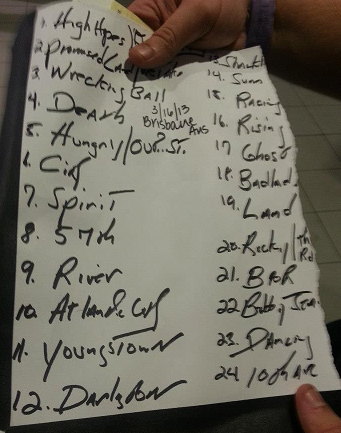 1. High Hopes
2. Promised Land
3. Wrecking Ball
4. Death
3/16/13
Brisbane
Aus
5. Hungry/Out..St.
6. City
7. Spirit
8. 57th
9. River
10. Atlantic City
11. Youngstown
12. Darkness
14. Sunn
15. Racing
16. Rising
17 Ghost
18. Badland
19. Land
20. Rocky/Th
Rd
21. BTR
22. Bobby Jean
23. Dancing
24 10th Ave